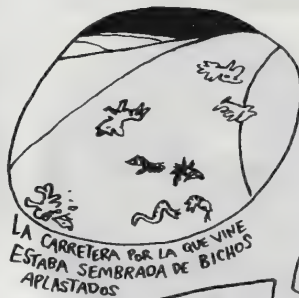 LA CARRETERA POR LA QUE VINE
ESTABA SEMBRADA DE BICHOS
APLASTADOS